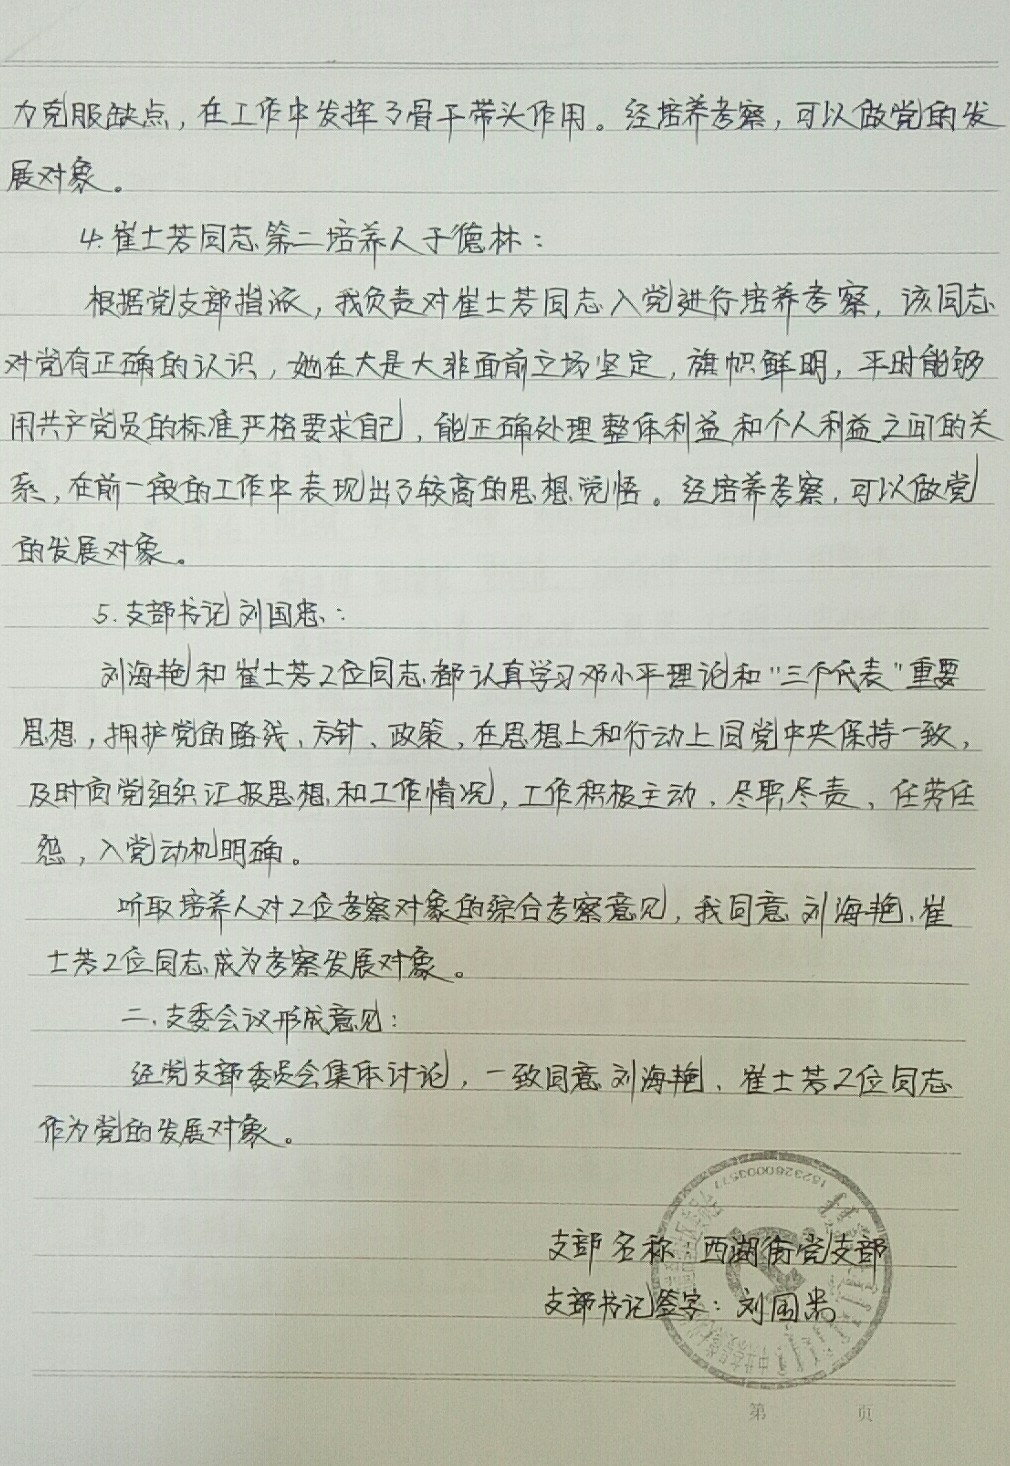 力克服缺点，在工作中发挥了骨干带头作用。经培养考察，可以做党的发
展对象。
4.崔士芳同志第二培养人于德林：
根据党支部指派，我负责对崔士芳同志入党进行培养考察，该同志
对党有正确的认识，她在大是大非面前立场坚定，旗帜鲜明，平时能够
用共产党员的标准严格要求自己，能正确处理整体利益和个人利益之间的关
系，在前一段的工作中表现出了较高的思想觉悟。经培养考察，可以做党
的发展对象。
5.支部书记刘国忠：
刘海艳和崔士芳2位同志都认真学习邓小平理论和“三个代表”重要
思想，拥护党的路线、方针、政策，在思想上和行动上同党中央保持一致，
及时向党组织汇报思想和工作情况，工作积极主动、尽职尽责、任劳任
怨，入党动机明确。
听取培养人对2位考察对象的综合考察意见，我同意刘海艳、崔
士芳2位同志成为考察发展对象。
二、支委会议形成意见：
经党支部委员会集体讨论，一致同意刘海艳、崔士芳2位同志
作为党的发展对象。
1523260003577
支部名称：西湖街党支部
支部书记签字：刘国忠
第 页